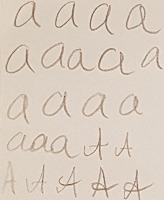 a a a a
a a a a a
a a a a
a a a A A
A A A A A